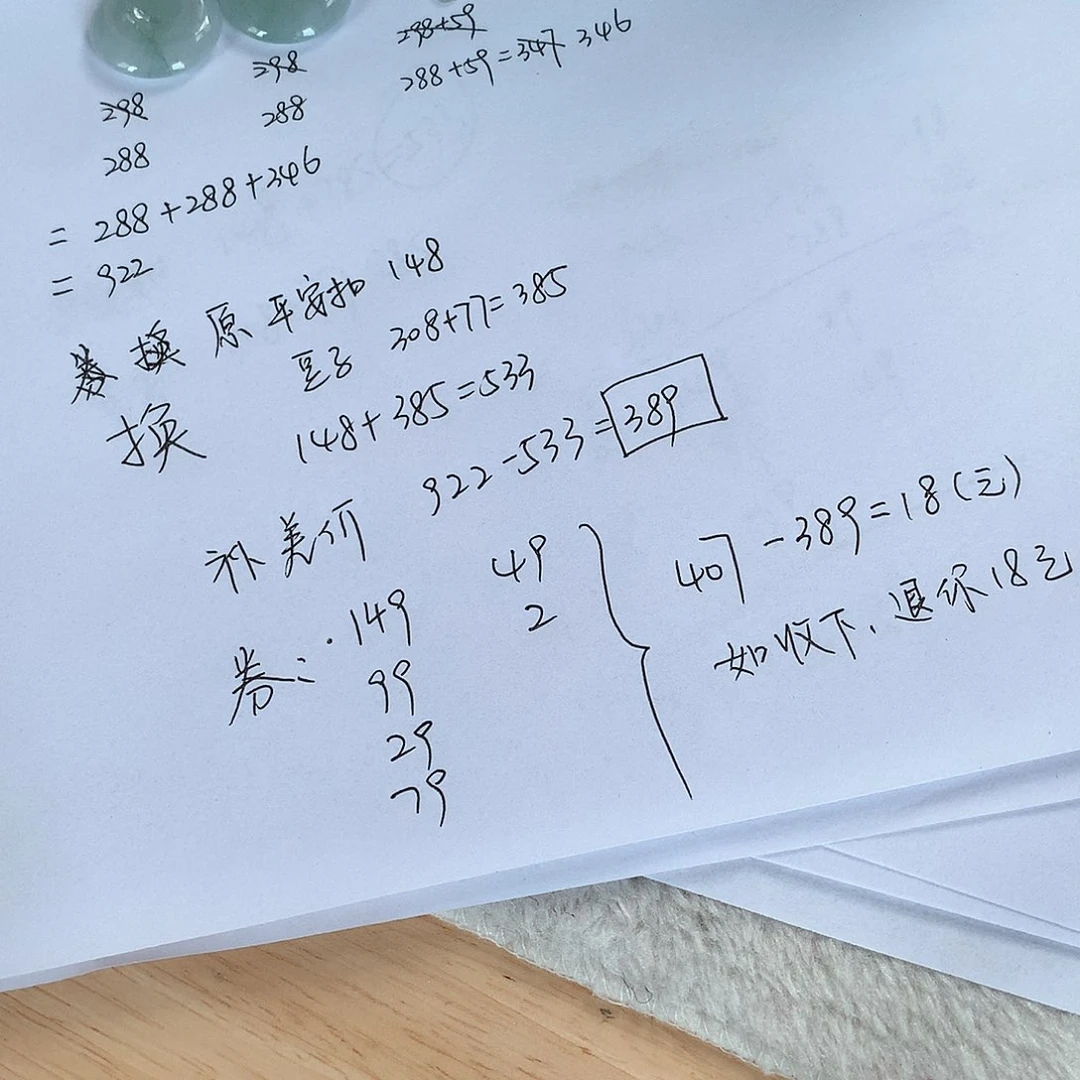 298+59
288+59=347 346
298 298
288 288
= 288+288+346
= 922
券 换 原 平安扣 148
豆子 308+77=385
换 148+385=533
补差价 922-533=389
券: 149 49
99 2
29
79
407-389=18(元)
如收下,退你18元